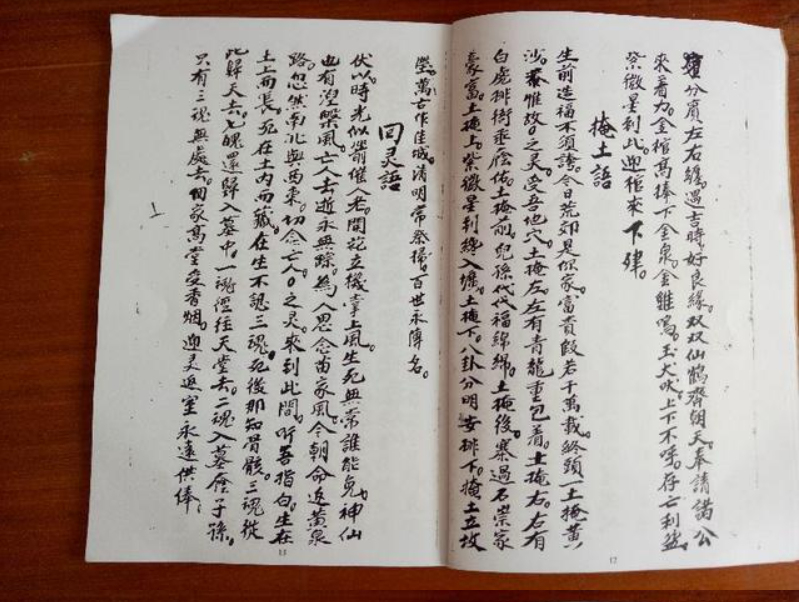 分賓左右纏。遇吉時好良緣。双双仙鶴齊朝天。奉請諸公
來着力。金棺高捧下金泉。金雞鳴。玉犬吠。上下不呼。存亡利益
紫微星到此。迎棺來下肂。
掩土語
生前造福不須誇。今日荒郊是你家。富貴假若千萬載。終須一土掩黄
沙。惟故。之灵。受吾地穴。土掩左。左有青龍重包着。土掩右。右有
白虎排衙垂蔭佑。土掩前。兒孫代代福綿綿。土掩後。寨過石崇家
豪富。土掩上。紫微星到綠入壙。土掩下。八卦分明安排下。掩土立坟
塋。萬古作佳城。清明常祭掃。百世永傳名。
回灵語
伏以時光似箭催人老。閒花立機掌上風。生死無常誰能免。神仙
也有湼槃風。亡人去逝永無踪。為人思念苗家風。今朝命返黄泉
路。忽然南北與西東。切念亡人。之灵。來到此間。听吾指白。生在
土上而長。死在土内而藏。在生不認三魂。死後那知骨骸。三魂從
此歸天去。七魄還歸入墓中。一魂徑往天堂去。二魂入墓蔭子孫。
只有三魂無處去。回家高堂受香烟。迎灵返室永遠供俸。
13
12